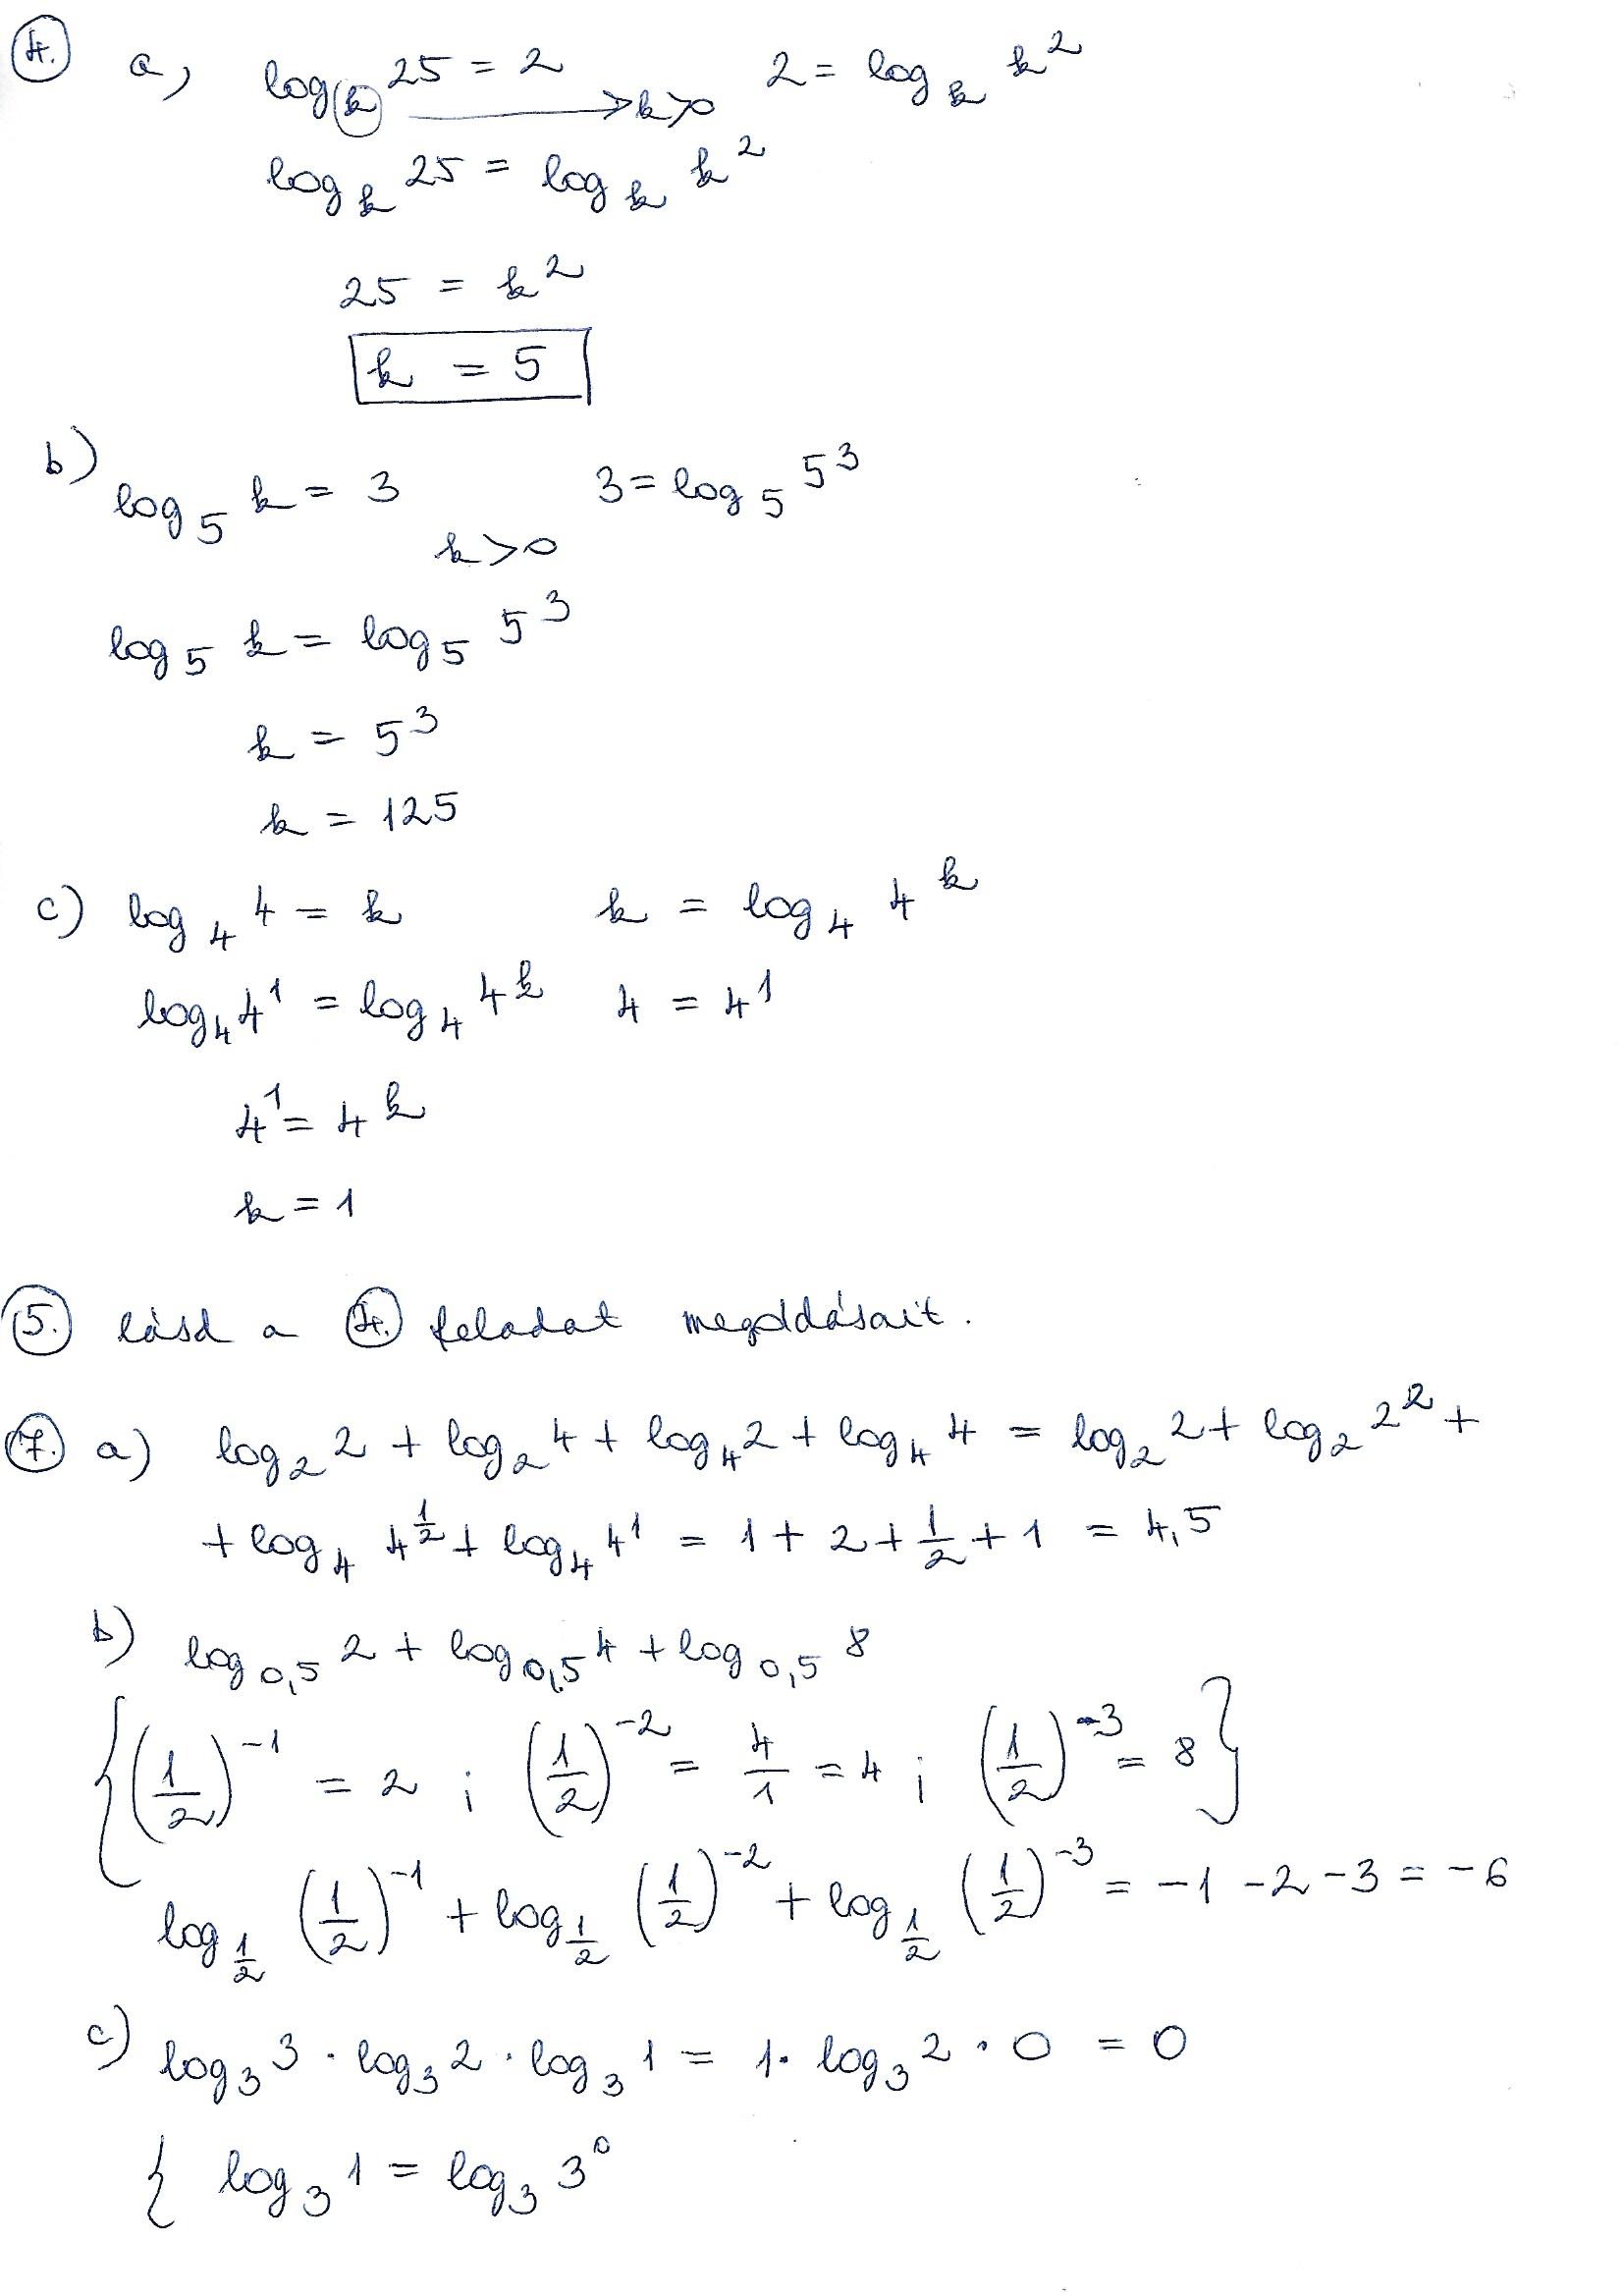 4. a, log_k 25 = 2 → k>0 2 = log_k k²
log_k 25 = log_k k²
25 = k²
k = 5
b) log_5 k = 3 3 = log_5 5³
k>0
log_5 k = log_5 5³
k = 5³
k = 125
c) log_4 4 = k k = log_4 4^k
log_4 4¹ = log_4 4^k 4 = 4¹
4¹ = 4^k
k = 1
5. lásd a 4. feladat megoldásait.
7. a) log_2 2 + log_2 4 + log_4 2 + log_4 4 = log_2 2 + log_2 2² +
+ log_4 4^(1/2) + log_4 4¹ = 1 + 2 + 1/2 + 1 = 4,5
b) log_0,5 2 + log_0,5 4 + log_0,5 8
{(1/2)^-1 = 2 ; (1/2)^-2 = 4/1 = 4 ; (1/2)^-3 = 8}
log_(1/2) (1/2)^-1 + log_(1/2) (1/2)^-2 + log_(1/2) (1/2)^-3 = -1 -2 -3 = -6
c) log_3 3 · log_3 2 · log_3 1 = 1 · log_3 2 · 0 = 0
{ log_3 1 = log_3 3⁰